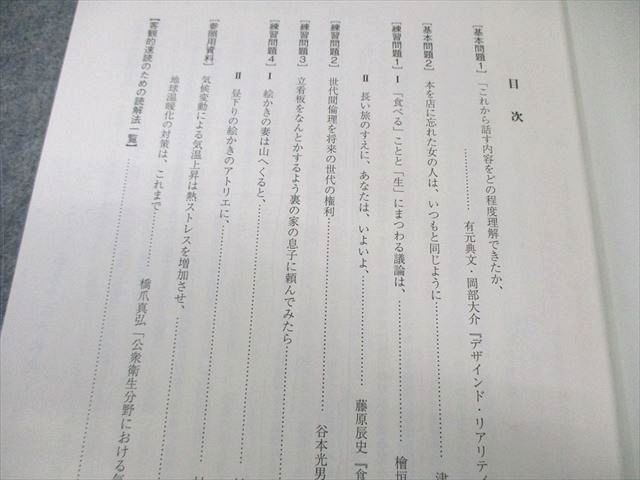 目次
［基本問題１］「これから話す内容をどの程度理解できたか、
有元典文・岡部大介『デザインド・リアリティ
［基本問題２］本を店に忘れた女の人は、いつもと同じように
［練習問題１］Ⅰ「食べる」ことと「生」にまつわる議論は、
檜垣
Ⅱ 長い旅のすえに、あなたは、いよいよ、
藤原辰史『食
［練習問題２］世代間倫理を将来の世代の権利
谷本光男
［練習問題３］立看板をなんとかするよう裏の家の息子に頼んでみたら
［練習問題４］Ⅰ 絵かきの妻は山へくると、
Ⅱ 昼下りの絵かきのアトリエに、
［参照用資料］気候変動による気温上昇は熱ストレスを増加させ、
地球温暖化の対策は、これまで
橋爪真弘「公衆衛生分野における気
【客観的速読のための読解法一覧】